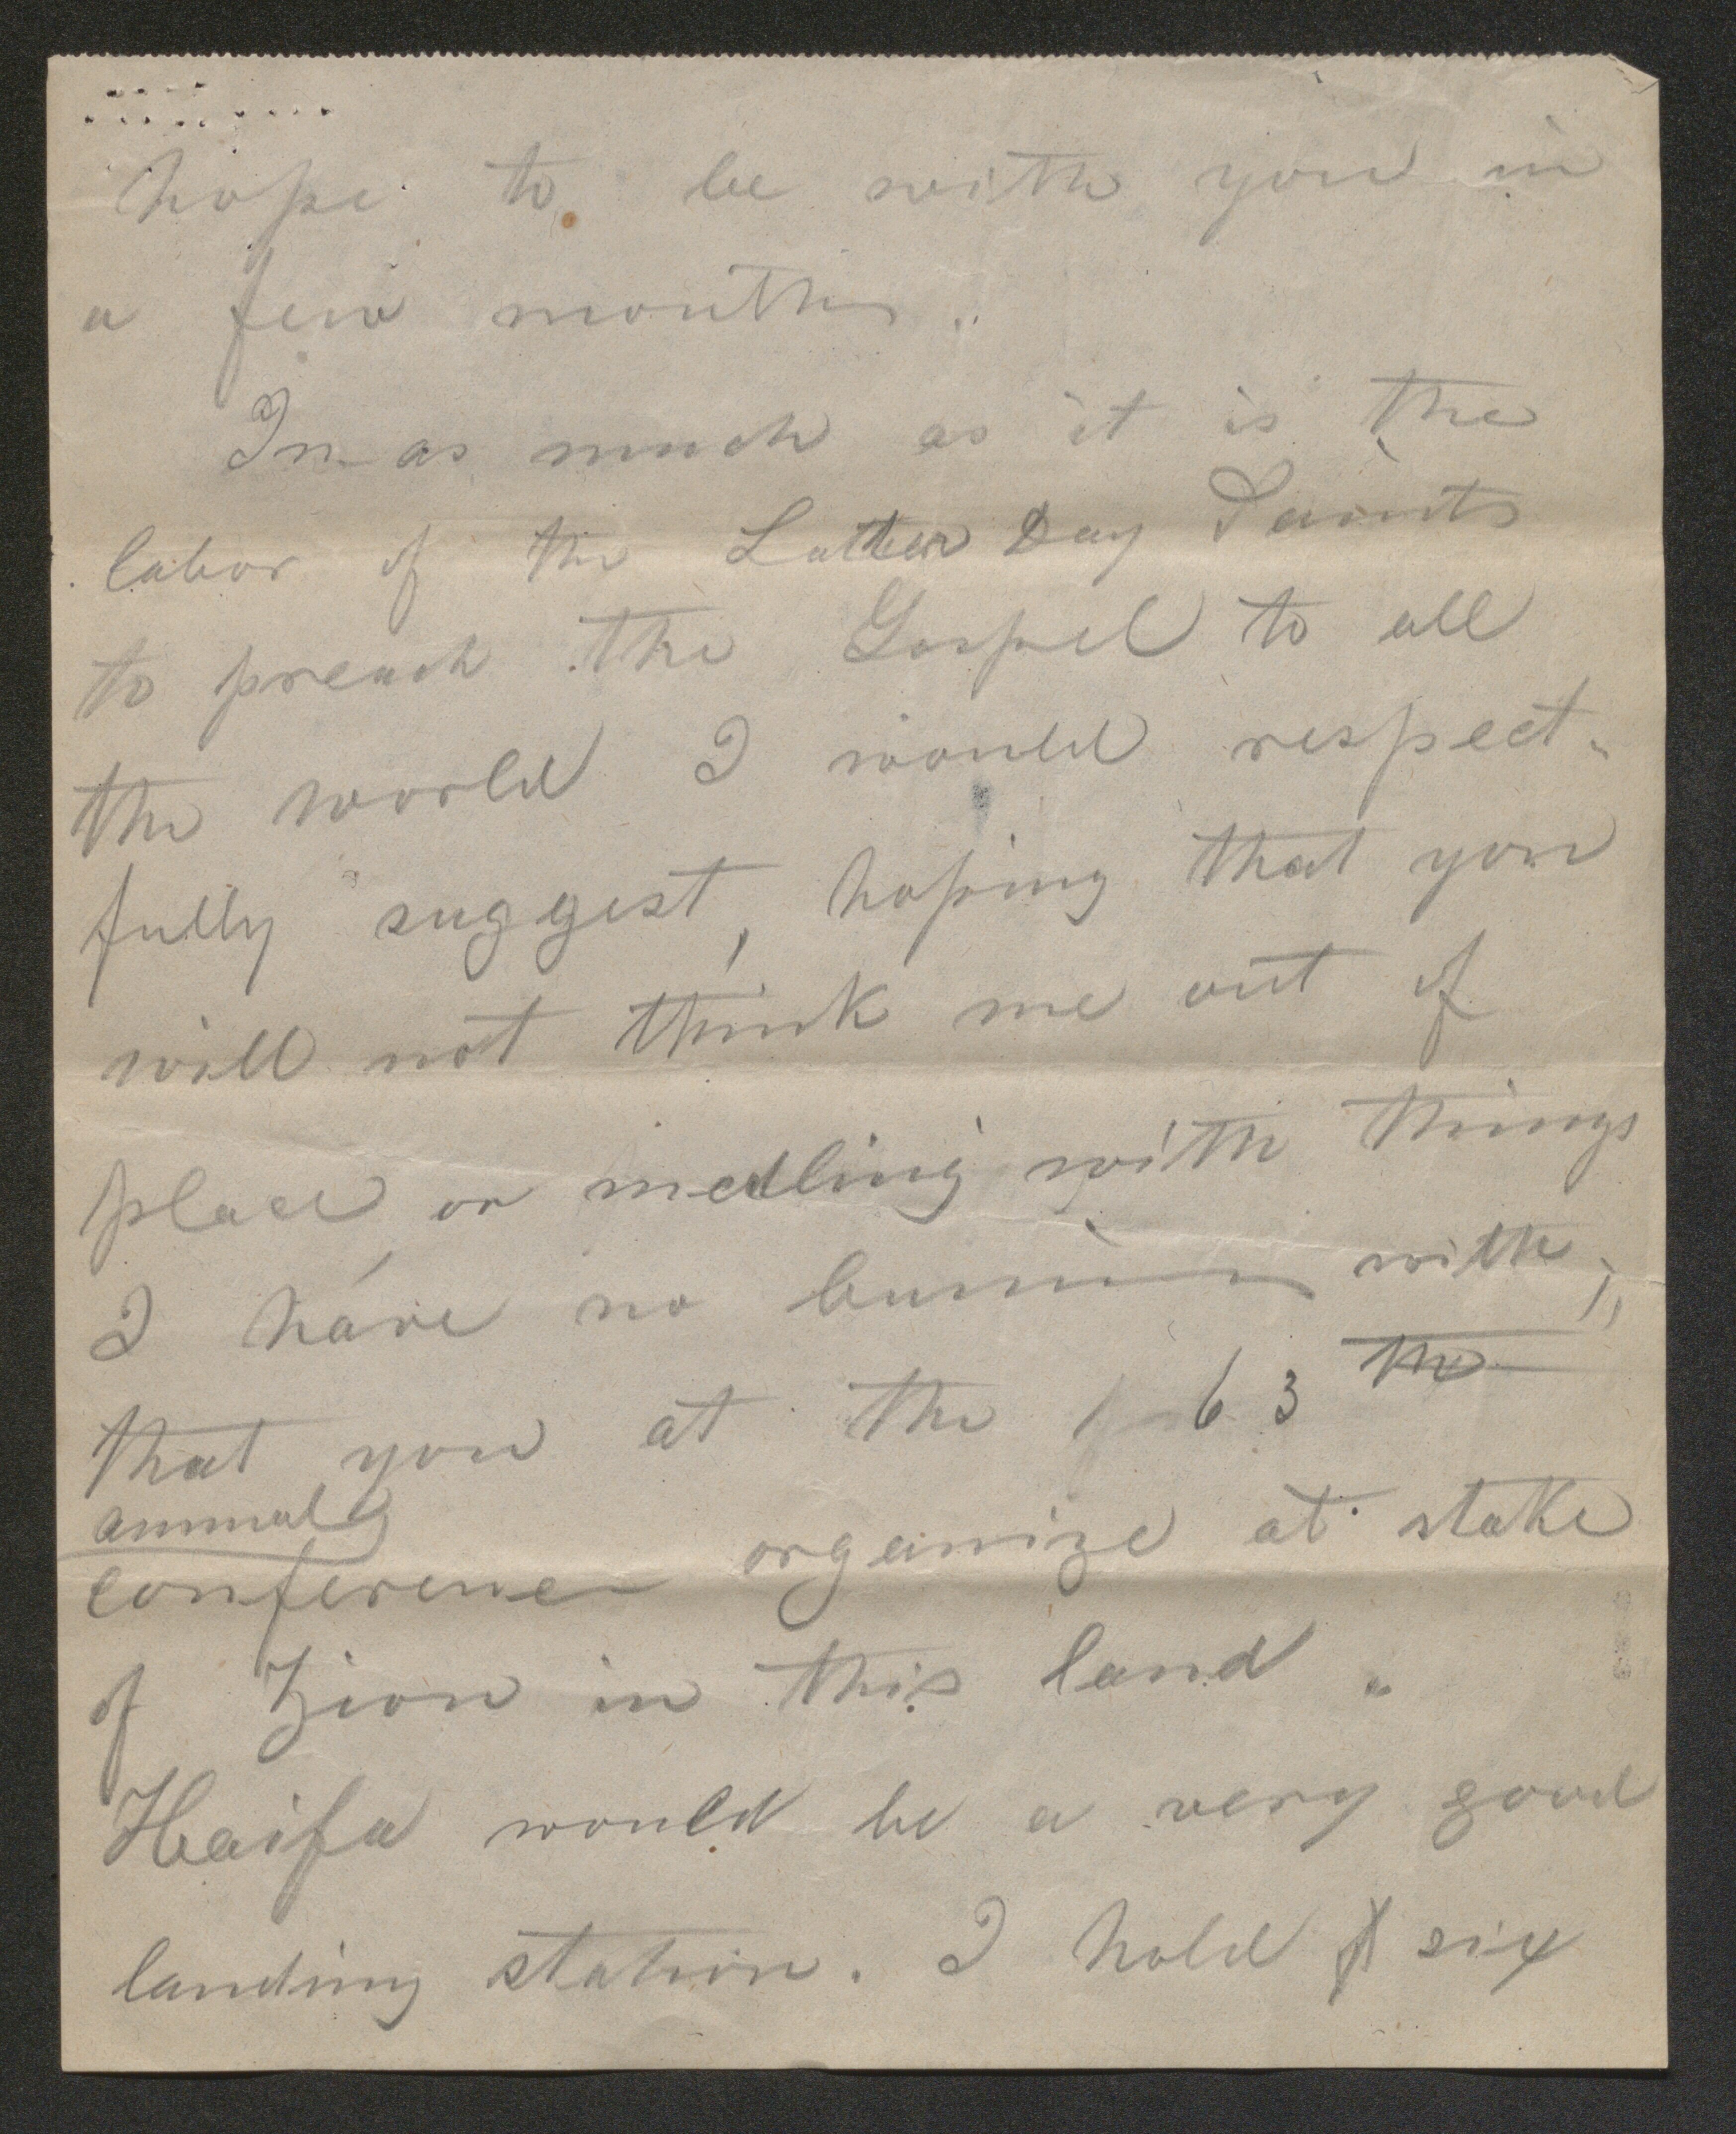 hope to be with you in
a few months.
In as much as it is the
labor of the Latter Day Saints
to preach the Gospel to all
the world I would respect-
fully suggest, hoping that you
will not think me out of
place or medling with things
I have no business with,
that you at the 63
annual
conference organize at stake
of Zion in this land.
Haifa would be a very good
landing station. I hold six